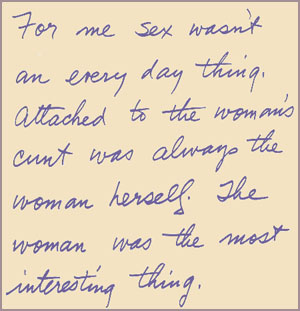 For me sex wasn't
an every day thing.
Attached to the woman's
cunt was always the
woman herself. The
woman was the most
interesting thing.